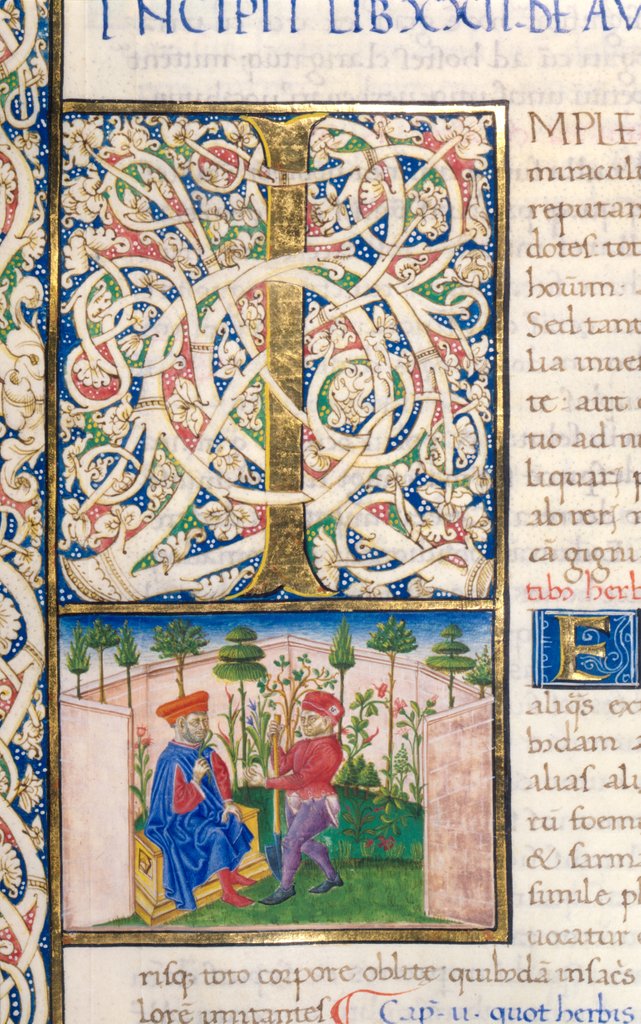 INCIPIT LIB XXII. DE AV
IMPLE
miraculi
reputan
dotes tot
houm.
Sed tam
lia inue
te: aut
tio ad
liquari p
ab rer
cā gignu
tibꝫ herb
E
aliq̃s ext
bꝰdam a
alias ali
rū foem
& sarm
simile p
uocatur
risqꝫ toto corpore oblite: quibꝰdā insac̃s
lorēm imitantes Cap. ii. quot herbis